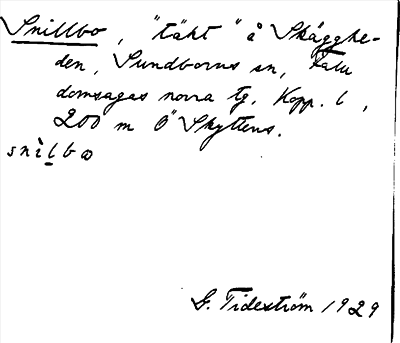 Snillbo, "täkt" å Skägghe-
den, Sundborns sn, Falu
domsagas norra tg. Kopp. l,
200 m Ö Skyttens.
snìlbω
G. Tideström 1929